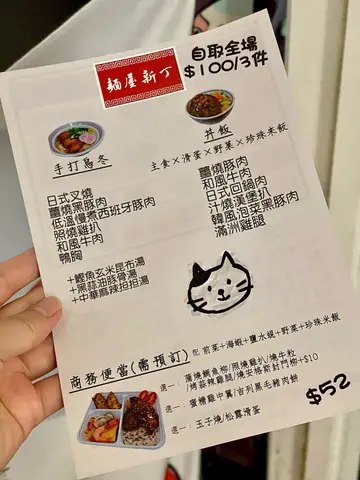 麵屋新丁
自取全場
$100/3件
手打烏冬
日式叉燒
薑燒黑豚肉
低溫慢煮西班牙豚肉
照燒雞扒
和風牛肉
鴨胸
+鰹魚玄米昆布湯
+黑蒜油豚骨湯
+中華麻辣担担湯
丼飯
主食×滑蛋×野菜×珍珠米飯
薑燒豚肉
和風牛肉
日式回鍋肉
汁燒漢堡扒
韓風泡菜黑豚肉
滿洲雞腿
商務便當(需預訂)
配 前菜+海蝦+鹽水蜆+野菜+珍珠米飯
選一: 蒲燒鯛魚柳/照燒雞扒/燒牛粒
/烤蒜辣雞腿/燒安格斯封門柳+$10
選一: 蜜糖雞中翼/吉列黑毛豬肉餅
選一: 玉子燒/松露滑蛋
$52